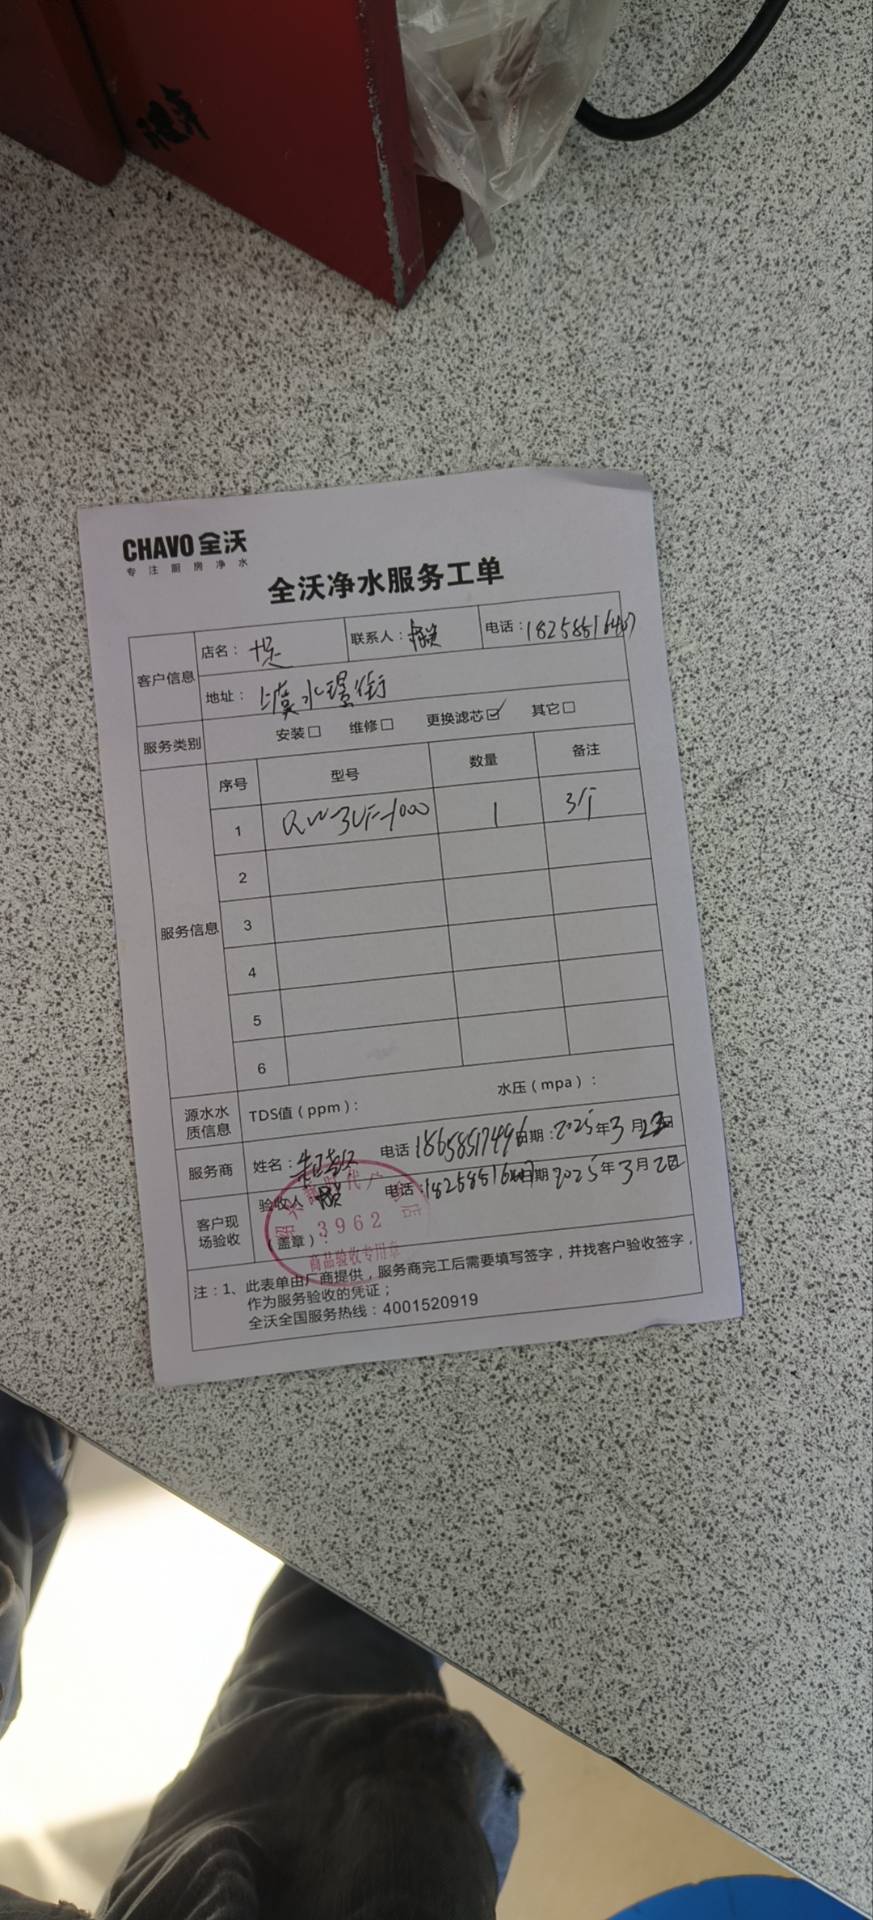 CHAVO 全沃
专注厨房净水
全沃净水服务工单
客户信息
店名：
联系人：
电话：
地址：上虞水璟街
服务类别
安装□ 维修□ 更换滤芯☑ 其它□
服务信息
序号 型号 数量 备注
1 QW-3UF-1000 1 3个
2
3
4
5
6
源水水质信息
TDS值（ppm）： 水压（mpa）：
服务商
姓名： 电话 18658517496 日期：2025年3月 日
客户现场验收
验收人 电话： 日期 2025年3月2日
（盖章）：
3962
商品验收专用章
注：1、此表单由厂商提供，服务商完工后需要填写签字，并找客户验收签字，
作为服务验收的凭证；
全沃全国服务热线：4001520919